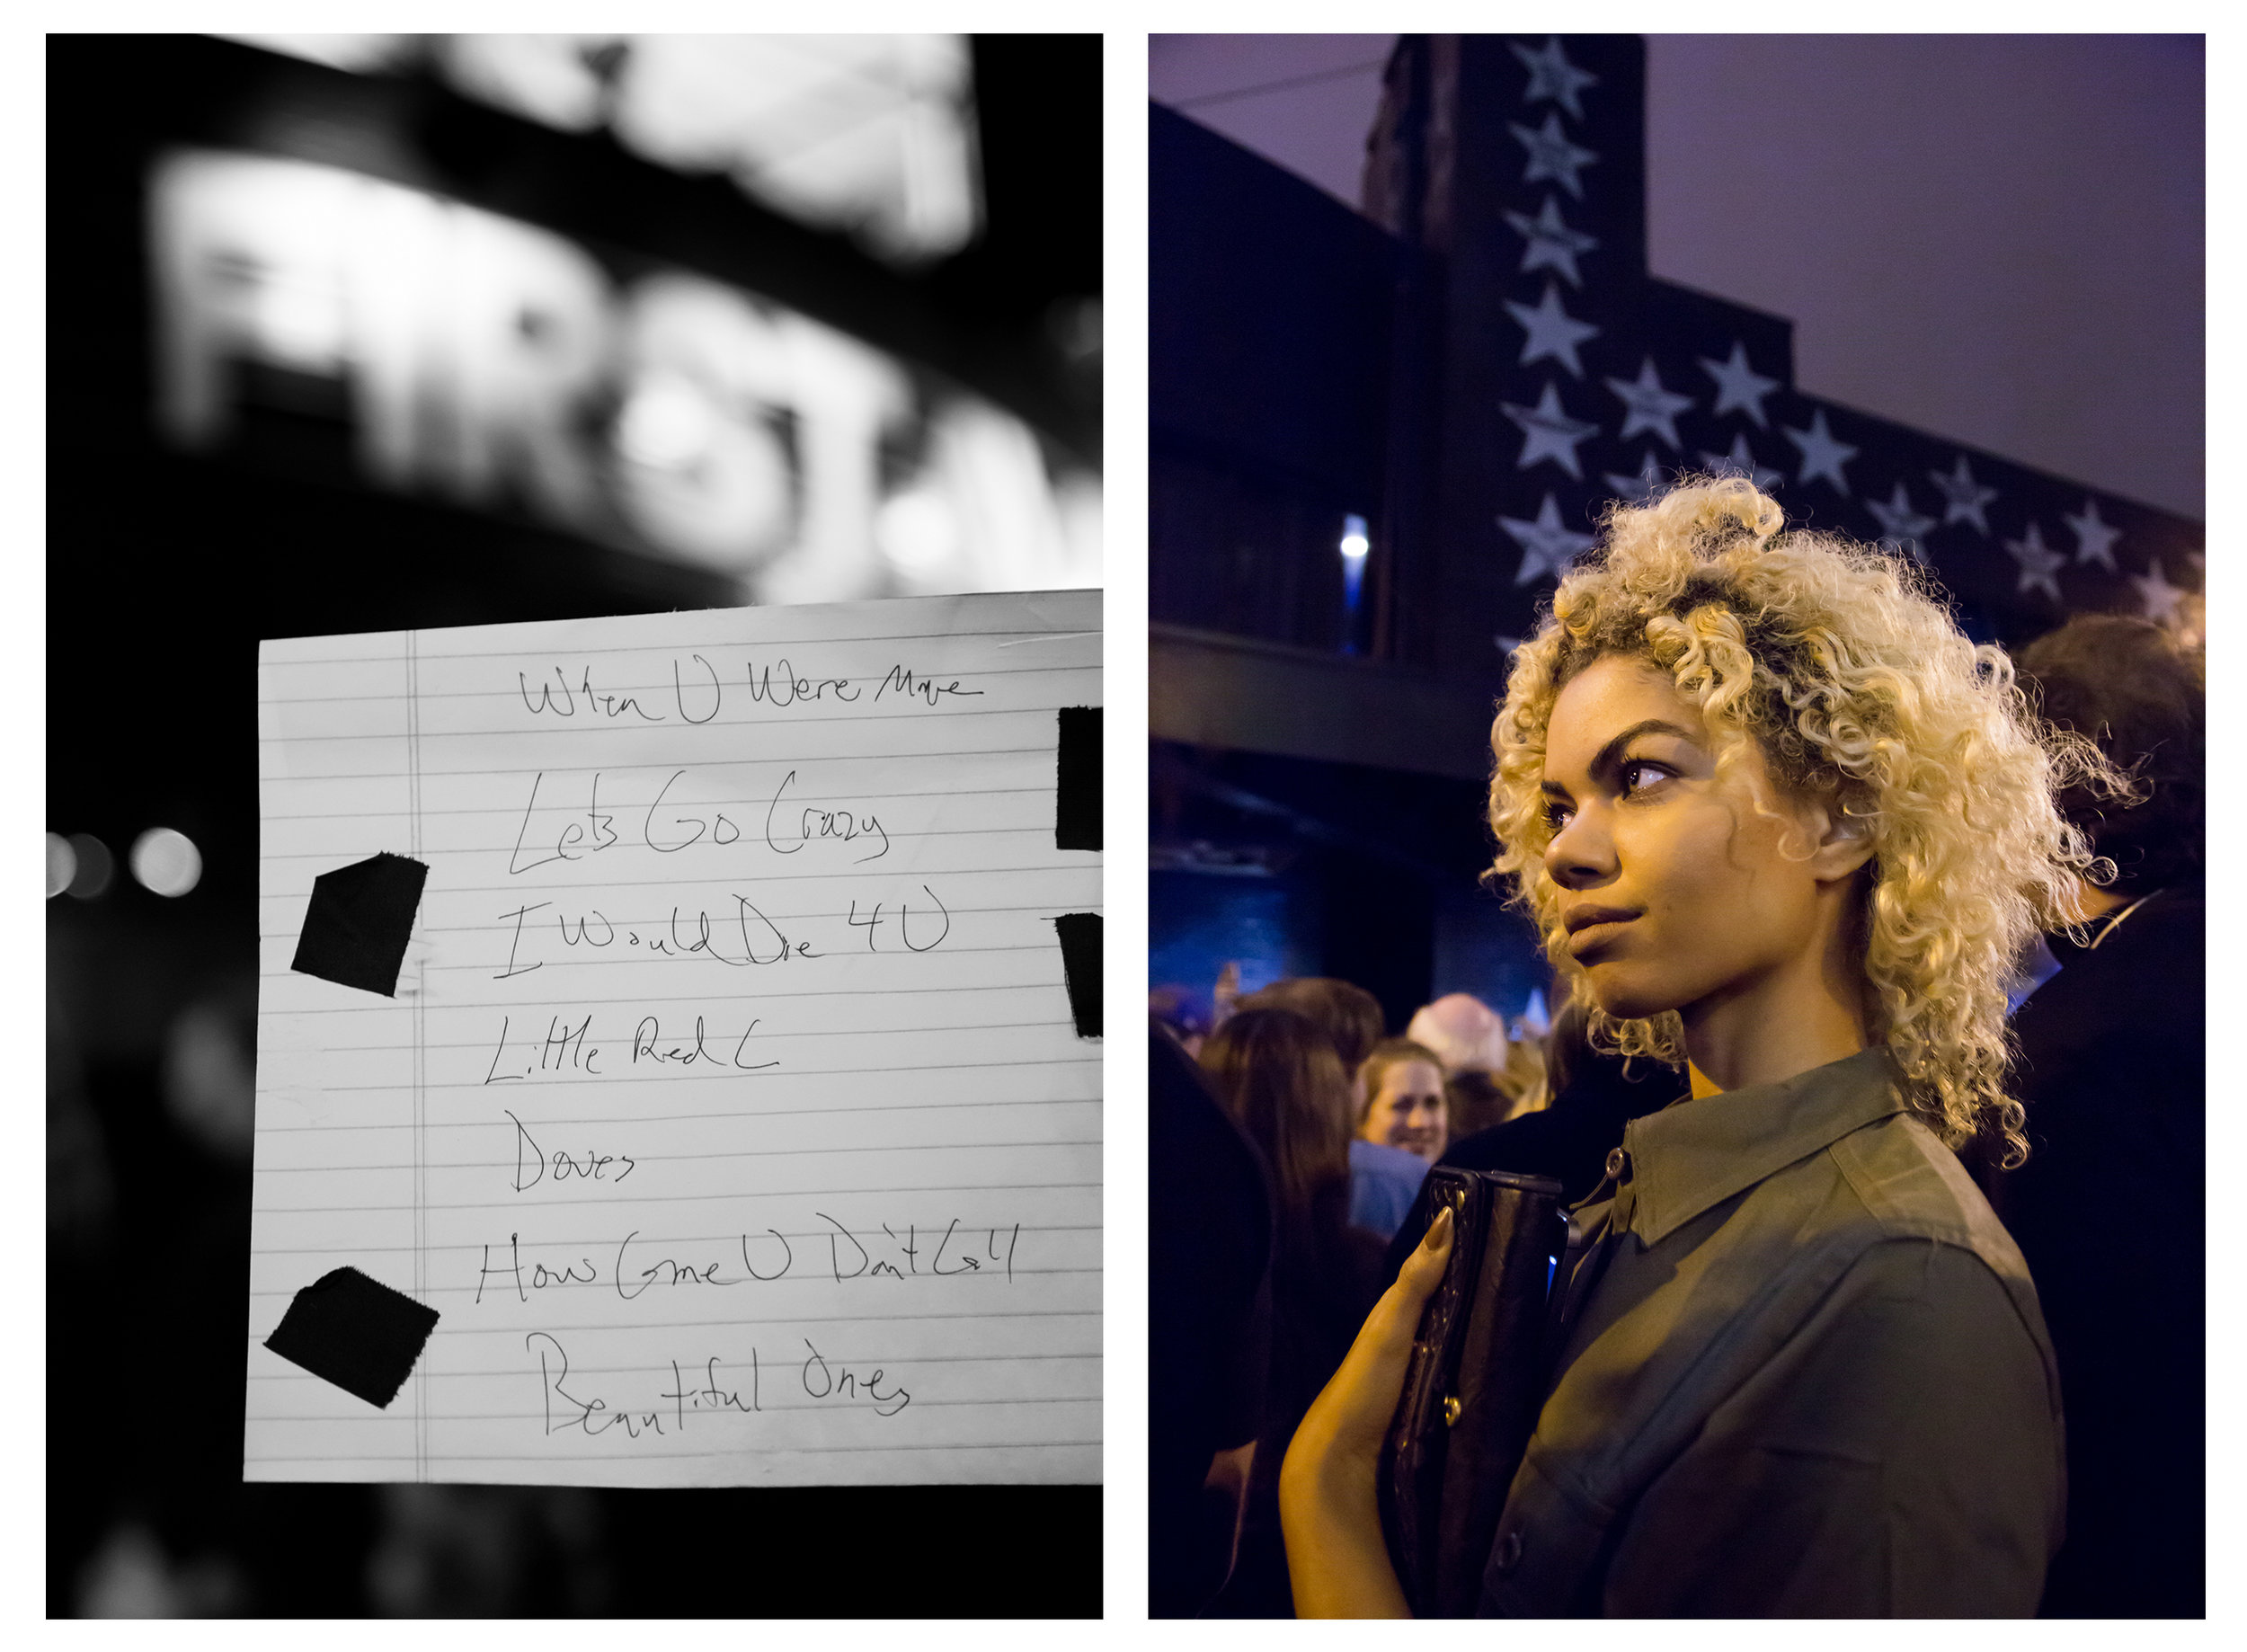 FIRST
When U Were Mine
Lets Go Crazy
I Would Die 4 U
Little Red C
Doves
How Come U Don't Call
Beautiful Ones